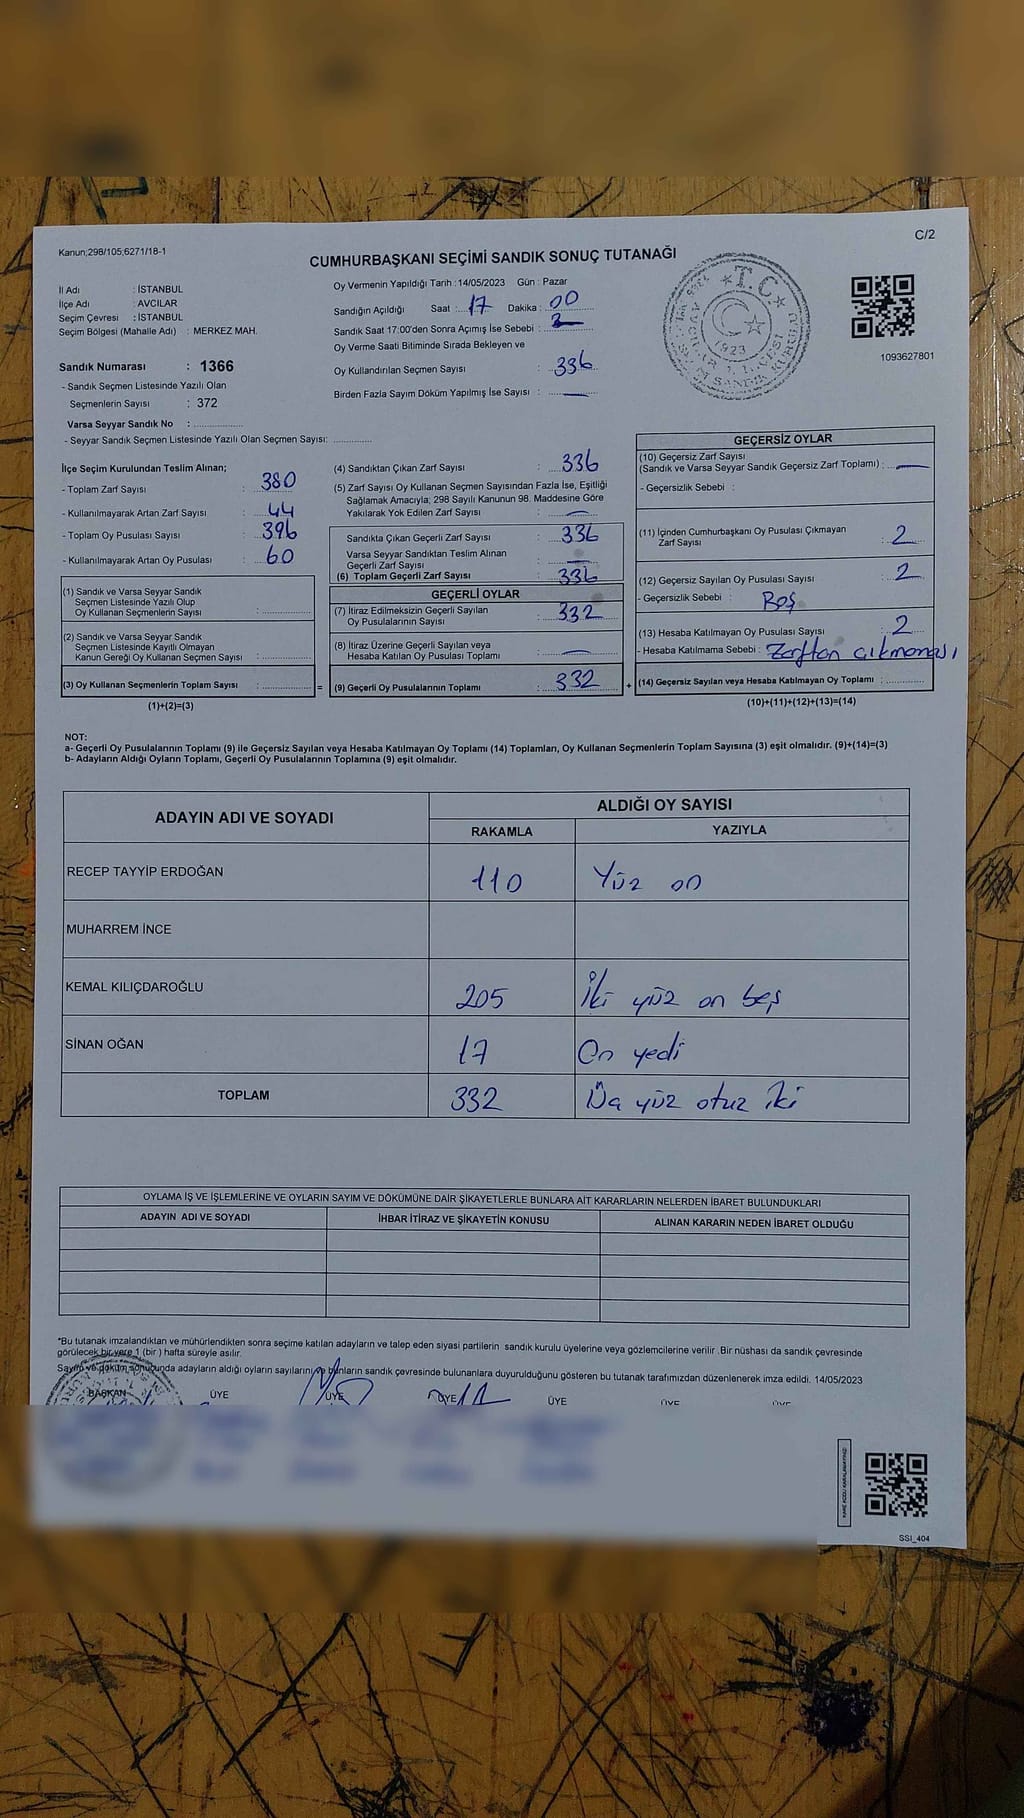 C/2
Kanun;298/105;6271/18-1
CUMHURBAŞKANI SEÇİMİ SANDIK SONUÇ TUTANAĞI
İl Adı : İSTANBUL
İlçe Adı : AVCILAR
Seçim Çevresi : İSTANBUL
Seçim Bölgesi (Mahalle Adı) : MERKEZ MAH.
Sandık Numarası : 1366
- Sandık Seçmen Listesinde Yazılı Olan
Seçmenlerin Sayısı : 372
Varsa Seyyar Sandık No :
- Seyyar Sandık Seçmen Listesinde Yazılı Olan Seçmen Sayısı:
Oy Vermenin Yapıldığı Tarih : 14/05/2023 Gün : Pazar
Sandığın Açıldığı Saat : 17 Dakika : 00
Sandık Saat 17:00'den Sonra Açımış İse Sebebi :
Oy Verme Saati Bitiminde Sırada Bekleyen ve
Oy Kullandırılan Seçmen Sayısı : 336
Birden Fazla Sayım Döküm Yapılmış İse Sayısı : —
T.C.
1923
1093627801
İlçe Seçim Kurulundan Teslim Alınan;
- Toplam Zarf Sayısı : 380
- Kullanılmayarak Artan Zarf Sayısı : 44
- Toplam Oy Pusulası Sayısı : 396
- Kullanılmayarak Artan Oy Pusulası : 60
(1) Sandık ve Varsa Seyyar Sandık
Seçmen Listesinde Yazılı Olup
Oy Kullanan Seçmenlerin Sayısı :
(2) Sandık ve Varsa Seyyar Sandık
Seçmen Listesinde Kayıtlı Olmayan
Kanun Gereği Oy Kullanan Seçmen Sayısı :
(3) Oy Kullanan Seçmenlerin Toplam Sayısı : =
(1)+(2)=(3)
(4) Sandıktan Çıkan Zarf Sayısı : 336
(5) Zarf Sayısı Oy Kullanan Seçmen Sayısından Fazla İse, Eşitliği
Sağlamak Amacıyla; 298 Sayılı Kanunun 98. Maddesine Göre
Yakılarak Yok Edilen Zarf Sayısı : —
Sandıkta Çıkan Geçerli Zarf Sayısı : 336
Varsa Seyyar Sandıktan Teslim Alınan
Geçerli Zarf Sayısı : —
(6) Toplam Geçerli Zarf Sayısı : 336
GEÇERLİ OYLAR
(7) İtiraz Edilmeksizin Geçerli Sayılan
Oy Pusulalarının Sayısı : 332
(8) İtiraz Üzerine Geçerli Sayılan veya
Hesaba Katılan Oy Pusulası Toplamı : —
(9) Geçerli Oy Pusulalarının Toplamı : 332 +
GEÇERSİZ OYLAR
(10) Geçersiz Zarf Sayısı
(Sandık ve Varsa Seyyar Sandık Geçersiz Zarf Toplamı) : —
- Geçersizlik Sebebi :
(11) İçinden Cumhurbaşkanı Oy Pusulası Çıkmayan
Zarf Sayısı : 2
(12) Geçersiz Sayılan Oy Pusulası Sayısı : 2
- Geçersizlik Sebebi : Boş
(13) Hesaba Katılmayan Oy Pusulası Sayısı : 2
- Hesaba Katılmama Sebebi : Zarftan çıkmaması
(14) Geçersiz Sayılan veya Hesaba Katılmayan Oy Toplamı :
(10)+(11)+(12)+(13)=(14)
NOT:
a- Geçerli Oy Pusulalarının Toplamı (9) ile Geçersiz Sayılan veya Hesaba Katılmayan Oy Toplamı (14) Toplamları, Oy Kullanan Seçmenlerin Toplam Sayısına (3) eşit olmalıdır. (9)+(14)=(3)
b- Adayların Aldığı Oyların Toplamı, Geçerli Oy Pusulalarının Toplamına (9) eşit olmalıdır.
ADAYIN ADI VE SOYADI ALDIĞI OY SAYISI
RAKAMLA YAZIYLA
RECEP TAYYİP ERDOĞAN 110 Yüz on
MUHARREM İNCE
KEMAL KILIÇDAROĞLU 205 İki yüz on beş
SİNAN OĞAN 17 On yedi
TOPLAM 332 yüz otuz iki
OYLAMA İŞ VE İŞLEMLERİNE VE OYLARIN SAYIM VE DÖKÜMÜNE DAİR ŞİKAYETLERLE BUNLARA AİT KARARLARIN NELERDEN İBARET BULUNDUKLARI
ADAYIN ADI VE SOYADI İHBAR İTİRAZ VE ŞİKAYETİN KONUSU ALINAN KARARIN NEDEN İBARET OLDUĞU
*Bu tutanak imzalandıktan ve mühürlendikten sonra seçime katılan adayların ve talep eden siyasi partilerin sandık kurulu üyelerine veya gözlemcilerine verilir .Bir nüshası da sandık çevresinde
görülecek bir yere 1 (bir ) hafta süreyle asılır.
Sayım ve döküm sonucunda adayların aldığı oyların sayılarını ve bunların sandık çevresinde bulunanlara duyurulduğunu gösteren bu tutanak tarafımızdan düzenlenerek imza edildi. 14/05/2023
BAŞKAN ÜYE ÜYE ÜYE ÜYE ÜYE ÜYE
SSI_404